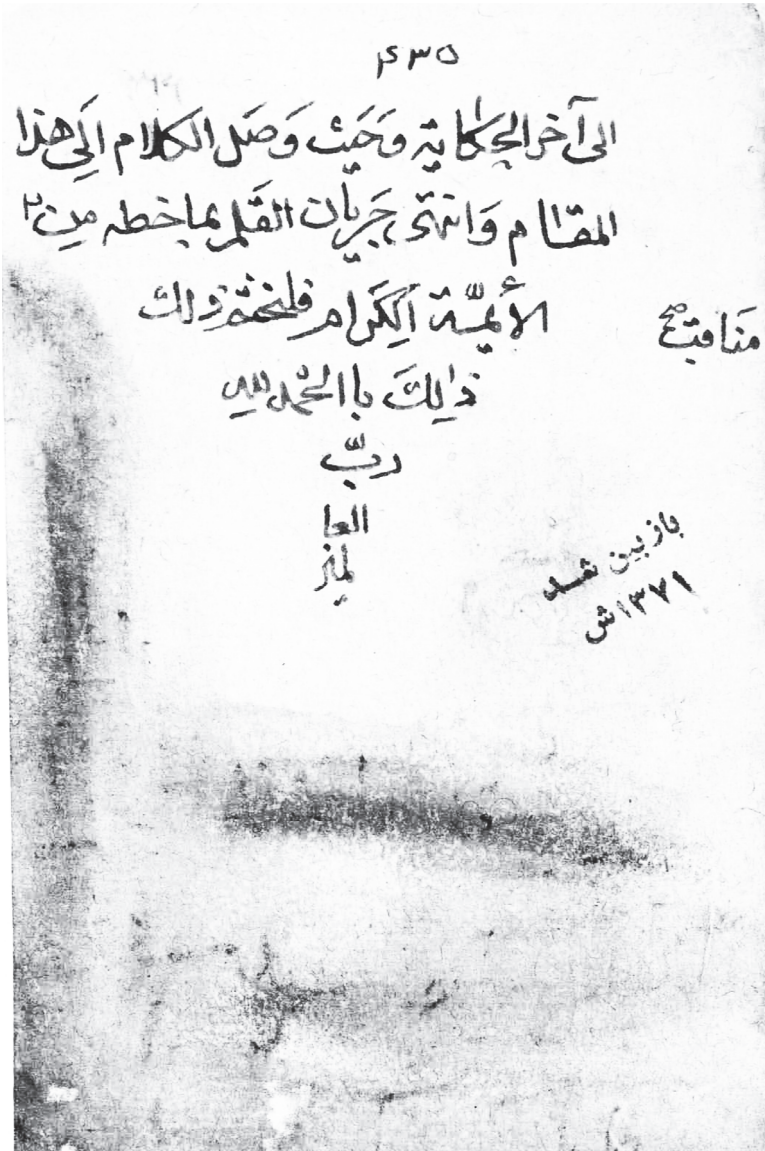 ۴۳۵
الى آخر الحِكاية وَحَيث وَصَل الكلام الَى هذا
المقام وَانتهىٰ جَريان القَلم بما خطه مِن٢
الأئِمّة الكِرَام فلنختم ذلك
مَناقب صح
ذالِكَ باالحْمد لله
ربّ
العا
لمين
بازبین شد
۱۳۷۱ش